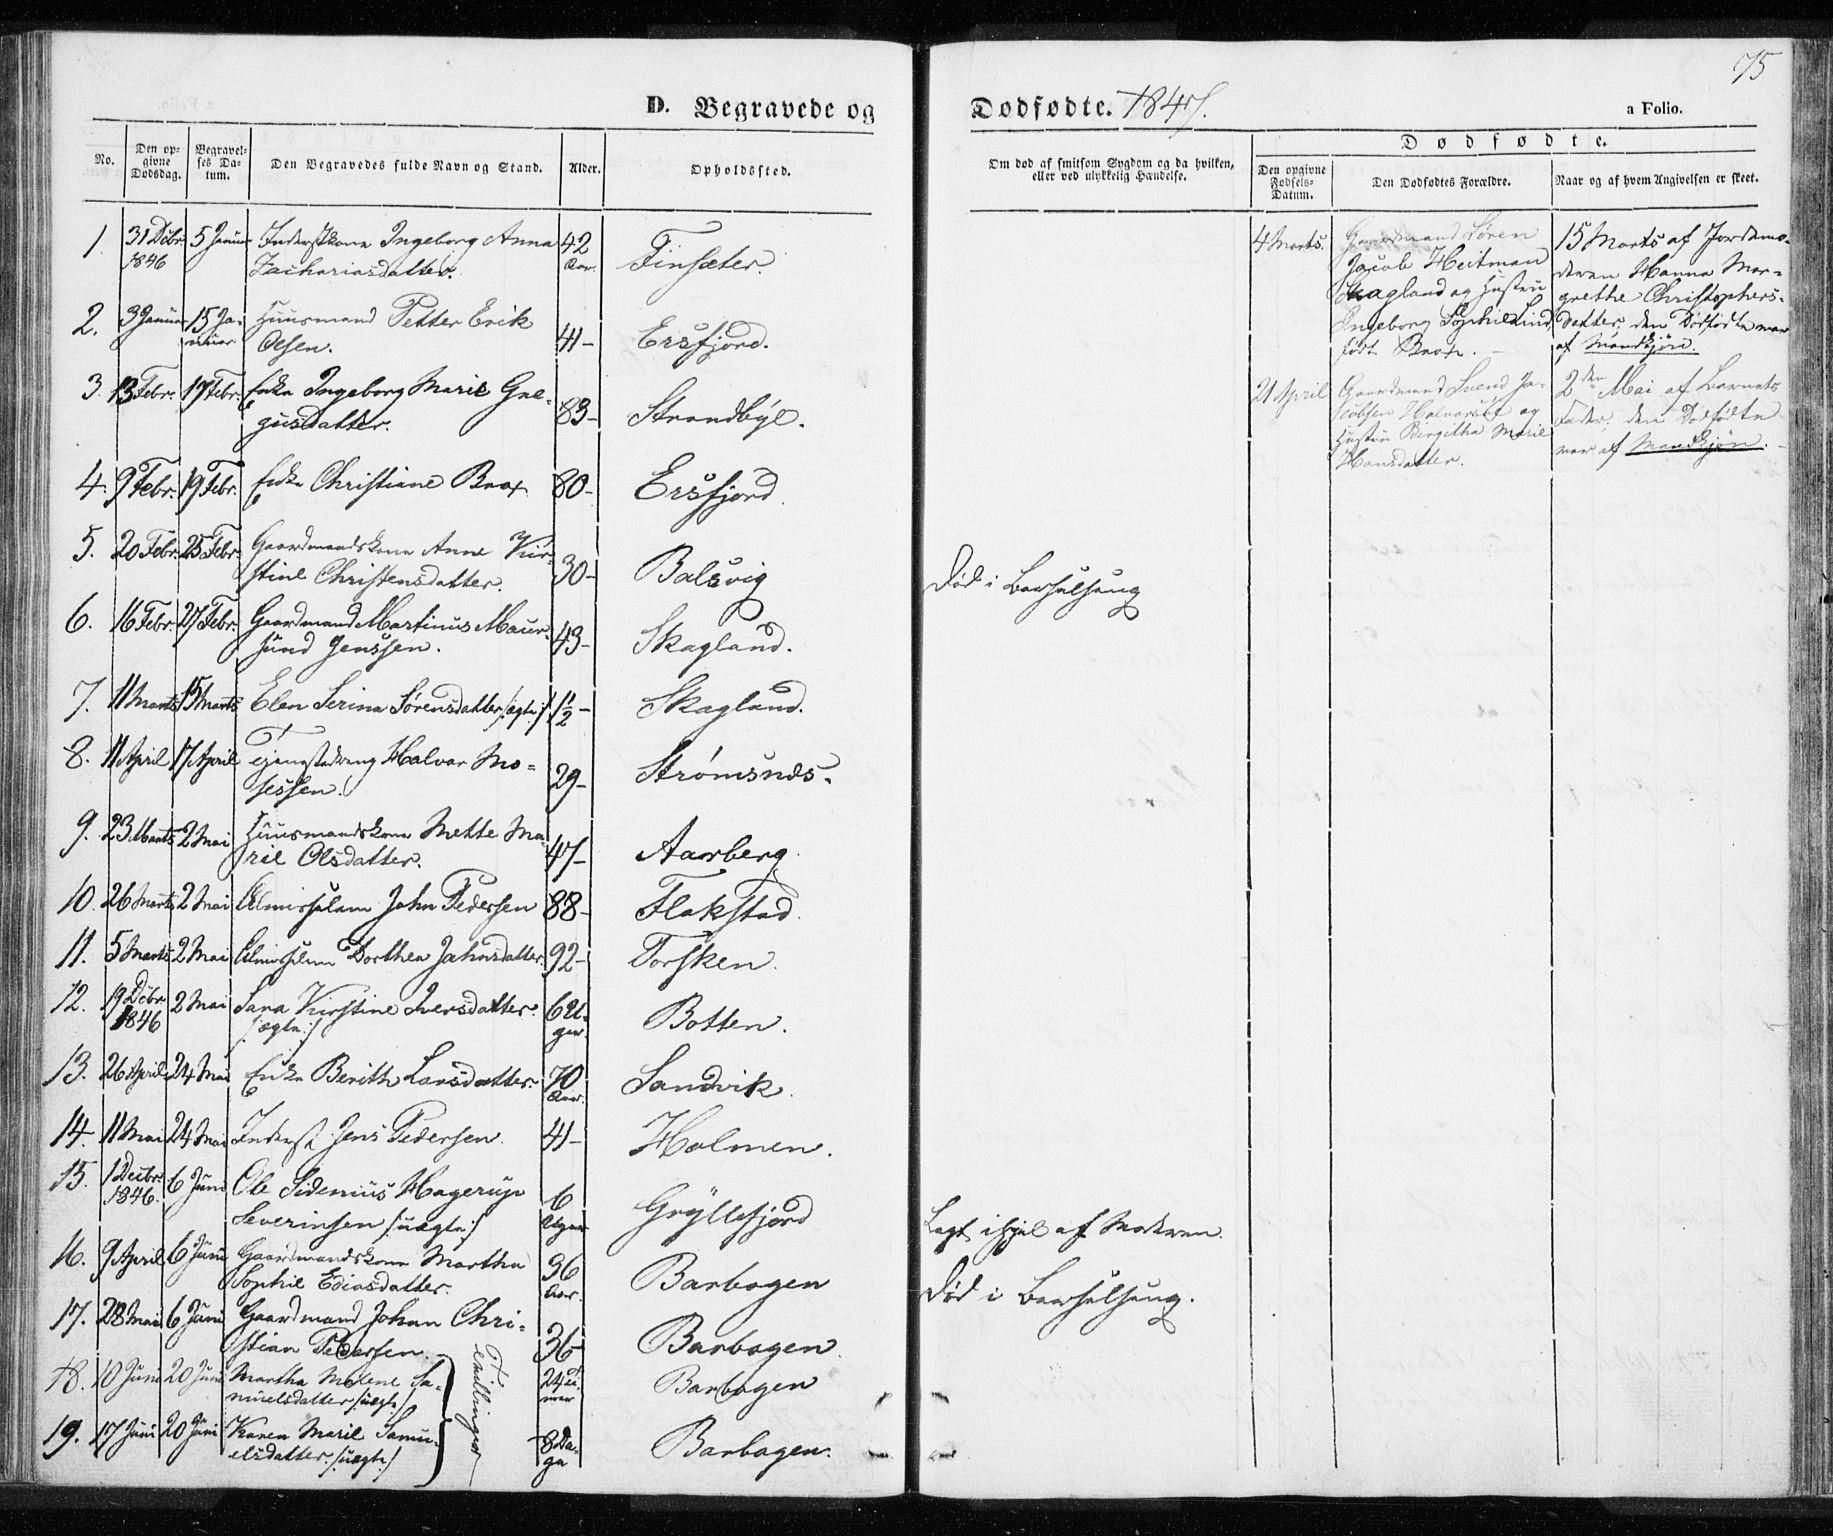 75
D. Begravede og Dødfødte. 1847.
a Folio.
No.
Den opgivne Dødsdag.
Begravelses Datum.
Den Begravedes fulde Navn og Stand.
Alder.
Opholdssted.
Om død af smitsom Sygdom og da hvilken, eller ved ulykkelig Hændelse.
Dødfødte.
Den opgivne Fødsels-Datum.
Den Dødfødtes Forældre.
Naar og af hvem Angivelsen er skeet.
1. 31 Decbr. 1846 5 Januar Inderstkone Ingeborg Anna 42 Aar. Finsæter.
Zachariasdatter.
2. 3 Januar 15 Januar Huusmand Petter Erik 41- Ersfjord.
Olsen.
3. 13 Febr. 17 Febr. Enke Ingeborg Marie Gre- 83- Strandbye.
gusdatter.
4. 9 Febr. 19 Febr. Enke Christiane Brox 80- Ersfjord.
5. 20 Febr. 25 Febr. Gaardmandskone Anne Kir- 30- Balsvig Død i Barselseng
stine Christensdatter.
6. 16 Febr. 27 Febr. Gaardmand Martinus Maur- 43- Skagland.
sund Jenssen.
7. 11 Marts 15 Marts Elen Serina Sørensdatter /:ægte:/ 1½- Skagland.
8. 11 April 17 April Tjenestedreng Halvor Mo- 29- Strømsnæs.
sessen.
9. 23 Marts 2 Mai Huusmandskone Mette Ma- 47- Aarberg.
rie Olsdatter.
10. 26 Marts 2 Mai Almisselem John Pedersen 88- Flakstad.
11. 5 Marts 2 Mai Almisselem Dorthea Johnsdatter 92- Torsken.
12. 19 Decbr. 1846 2 Mai Sara Kirstine Iversdatter 6 Uger Botten.
/:ægte:/
13. 26 April 24 Mai Enke Berith Larsdatter 70 Aar. Sandvik.
14. 11 Mai 24 Mai Inderst Jens Pedersen. 41- Holmen.
15. 1 Decbr. 1846. 6 Juni Ole Sidenius Hagerup 6 Uger Gryllefjord Lagt ihjel af Moderen.
Severinsen /:uægte:/
16. 9 April 6 Juni Gaardmandskone Martha 36 Aar. Barbogen Død i Barselseng.
Sophie Ediasdatter.
17. 28 Mai 6 Juni Gaardmand Johan Chri- 36- Barbogen.
stian Pedersen.
18. 10 Juni 20 Juni Martha Malene Sa- 24 Timer Barbogen
muelsdatter /:uægte:/
19. 17 Juni 20 Juni Karen Marie Samu- 8 Dage Barbogen.
elsdatter. /:uægte:/
Tvillinger
4 Marts. Gaardmand Søren
Jacob Heitman
Skagland og Hustru
Ingeborg Sophie Lind,
født Brox.
15 Marts af Jordemo-
deren Hanna Mar-
grethe Christophers-
datter, den Dødfødte var
af Mandkjøn.
21 April Gaardmand Svend Ja-
cobsen Halvarsøe og
Hustru Birgitha Marie
Hansdatter.
2den Mai af Barnets
Fader, den Dødfødte
var af Mandkjøn.